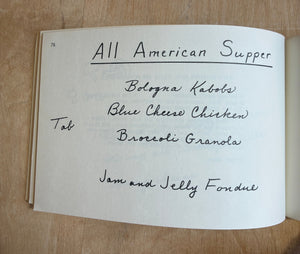 76
All American Supper
Bologna Kabobs
Blue Cheese Chicken
Tab
Broccoli Granola
Jam and Jelly Fondue